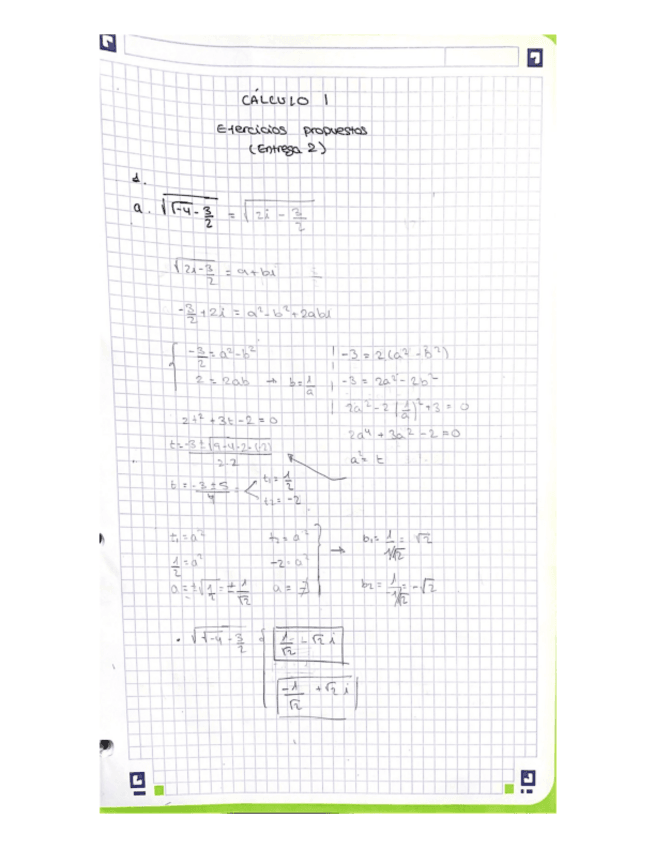 CÁLCULO 1
Ejercicios propuestos
(Entrega 2)
1.
a. √(√-4 - 3/2) = √(2i - 3/2)
√(2i - 3/2) = a+bi
-3/2 + 2i = a² - b² + 2abi
-3/2 = a² - b²
2 = 2ab → b = 1/a
-3 = 2(a² - b²)
-3 = 2a² - 2b²
2a² - 2(1/a)² + 3 = 0
2a⁴ + 3a² - 2 = 0
a² = t
2t² + 3t - 2 = 0
t = -3 ± √(9-4·2·(-2)) / 2·2
t = -3 ± 5 / 4 = < t₁ = 1/2
t₂ = -2
t₁ = a²
1/2 = a²
a = ±√(1/2) = ± 1/√2
t₂ = a²
-2 = a²
a = ∄
→ b₁ = 1/(1/√2) = √2
b₂ = 1/(-1/√2) = -√2
• √(√-4 - 3/2) { 1/√2 - √2 i
-1/√2 + √2 i